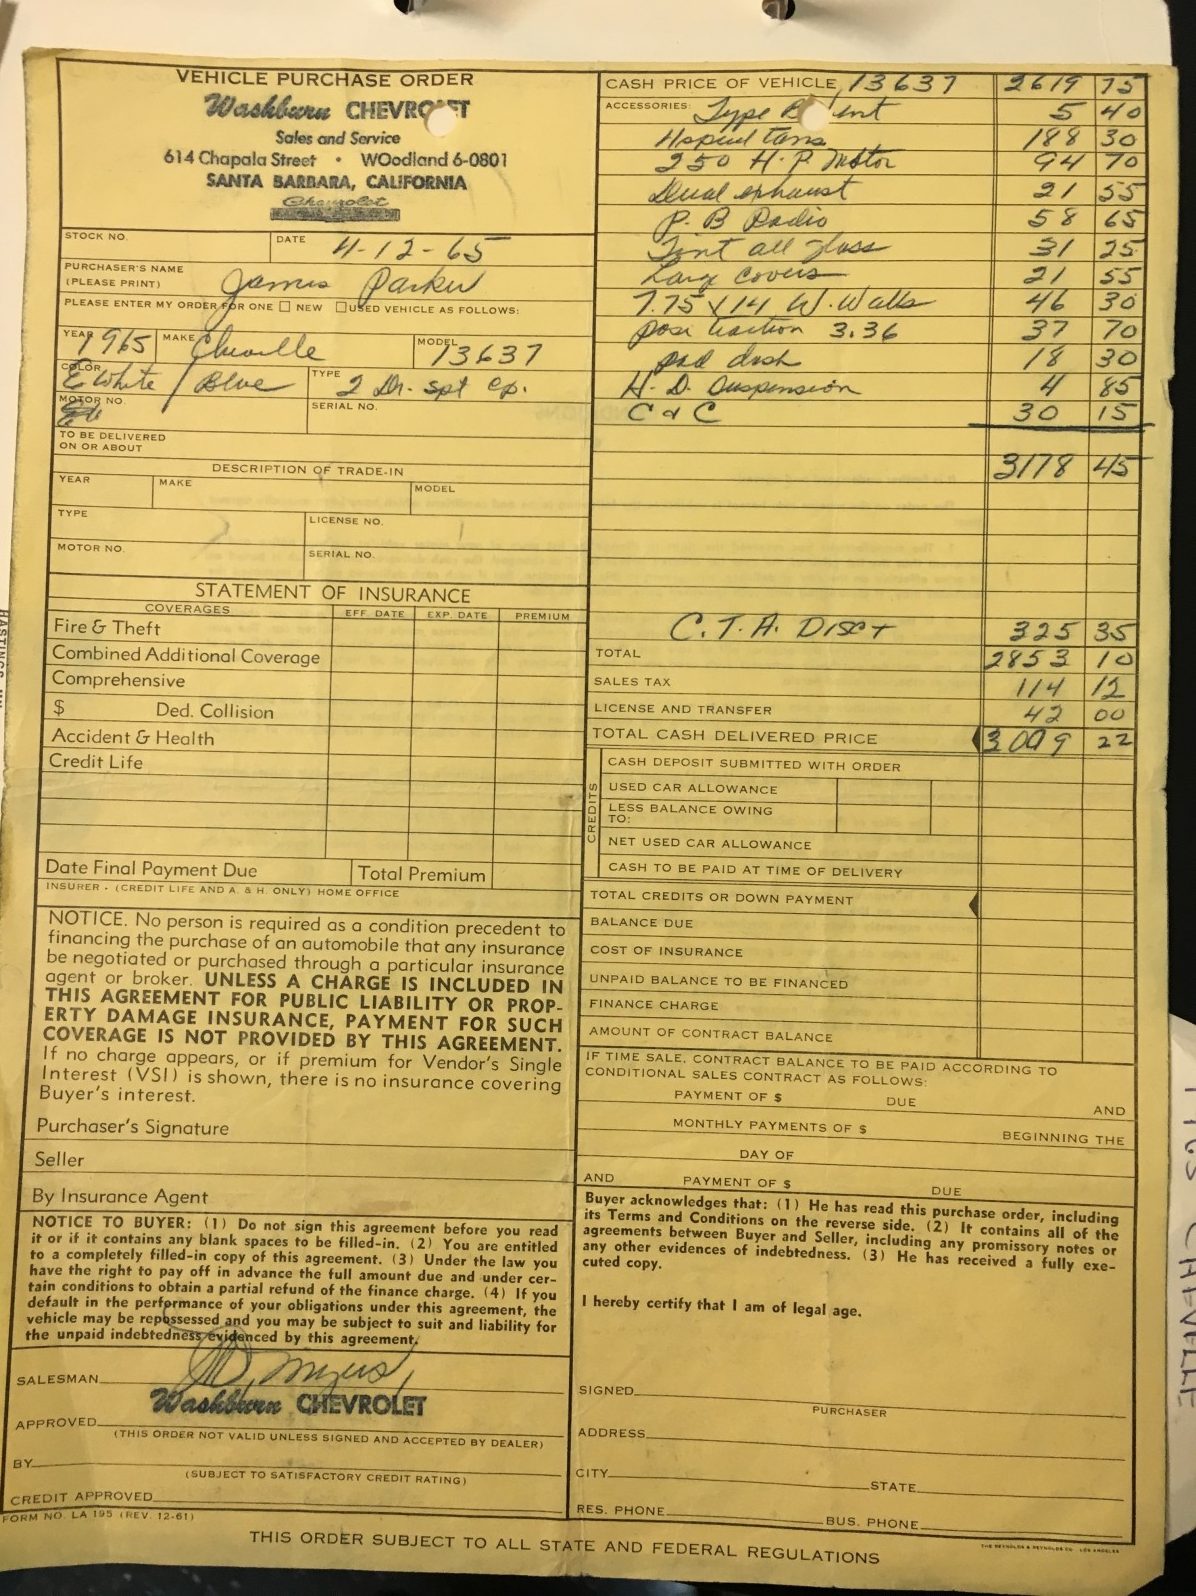 VEHICLE PURCHASE ORDER
Washburn CHEVROLET
Sales and Service
614 Chapala Street • WOodland 6-0801
SANTA BARBARA, CALIFORNIA
Chevrolet
STOCK NO.
DATE 4-12-65
PURCHASER'S NAME
(PLEASE PRINT) James Parker
PLEASE ENTER MY ORDER FOR ONE □ NEW □ USED VEHICLE AS FOLLOWS:
YEAR 1965 MAKE Chevelle MODEL 13637
COLOR E White / Blue TYPE 2 Dr. spt cp.
MOTOR NO. SERIAL NO.
TO BE DELIVERED
ON OR ABOUT
DESCRIPTION OF TRADE-IN
YEAR MAKE MODEL
TYPE LICENSE NO.
MOTOR NO. SERIAL NO.
STATEMENT OF INSURANCE
COVERAGES EFF. DATE EXP. DATE PREMIUM
Fire & Theft
Combined Additional Coverage
Comprehensive
$ Ded. Collision
Accident & Health
Credit Life
Date Final Payment Due Total Premium
INSURER - (CREDIT LIFE AND A. & H. ONLY) HOME OFFICE
NOTICE. No person is required as a condition precedent to
financing the purchase of an automobile that any insurance
be negotiated or purchased through a particular insurance
agent or broker. UNLESS A CHARGE IS INCLUDED IN
THIS AGREEMENT FOR PUBLIC LIABILITY OR PROP-
ERTY DAMAGE INSURANCE, PAYMENT FOR SUCH
COVERAGE IS NOT PROVIDED BY THIS AGREEMENT.
If no charge appears, or if premium for Vendor's Single
Interest (VSI) is shown, there is no insurance covering
Buyer's interest.
Purchaser's Signature
Seller
By Insurance Agent
NOTICE TO BUYER: (1) Do not sign this agreement before you read
it or if it contains any blank spaces to be filled-in. (2) You are entitled
to a completely filled-in copy of this agreement. (3) Under the law you
have the right to pay off in advance the full amount due and under cer-
tain conditions to obtain a partial refund of the finance charge. (4) If you
default in the performance of your obligations under this agreement, the
vehicle may be repossessed and you may be subject to suit and liability for
the unpaid indebtedness evidenced by this agreement.
SALESMAN Myers
Washburn CHEVROLET
APPROVED
(THIS ORDER NOT VALID UNLESS SIGNED AND ACCEPTED BY DEALER)
BY
(SUBJECT TO SATISFACTORY CREDIT RATING)
CREDIT APPROVED
FORM NO. LA 195 (REV. 12-61)
CASH PRICE OF VEHICLE 13637 2619 75
ACCESSORIES: Type B vent 5 40
4 speed trans 188 30
250 H.P. Motor 94 70
Dual exhaust 21 55
P.B Radio 58 65
Tint all glass 31 25
Large covers 21 55
7.75 X 14 W. Walls 46 30
posi traction 3.36 37 70
pad dash 18 30
H.D. Suspension 4 85
C & C 30 15
3178 45
C.T.A. DISCT 325 35
TOTAL 2853 10
SALES TAX 114 12
LICENSE AND TRANSFER 42 00
TOTAL CASH DELIVERED PRICE 3009 22
CREDITS
CASH DEPOSIT SUBMITTED WITH ORDER
USED CAR ALLOWANCE
LESS BALANCE OWING
TO:
NET USED CAR ALLOWANCE
CASH TO BE PAID AT TIME OF DELIVERY
TOTAL CREDITS OR DOWN PAYMENT
BALANCE DUE
COST OF INSURANCE
UNPAID BALANCE TO BE FINANCED
FINANCE CHARGE
AMOUNT OF CONTRACT BALANCE
IF TIME SALE, CONTRACT BALANCE TO BE PAID ACCORDING TO
CONDITIONAL SALES CONTRACT AS FOLLOWS:
PAYMENT OF $ DUE AND
MONTHLY PAYMENTS OF $ BEGINNING THE
DAY OF
AND PAYMENT OF $ DUE
Buyer acknowledges that: (1) He has read this purchase order, including
its Terms and Conditions on the reverse side. (2) It contains all of the
agreements between Buyer and Seller, including any promissory notes or
any other evidences of indebtedness. (3) He has received a fully exe-
cuted copy.
I hereby certify that I am of legal age.
SIGNED
PURCHASER
ADDRESS
CITY STATE
RES. PHONE BUS. PHONE
THE REYNOLDS & REYNOLDS CO. LOS ANGELES
THIS ORDER SUBJECT TO ALL STATE AND FEDERAL REGULATIONS
1965 CHEVELLE